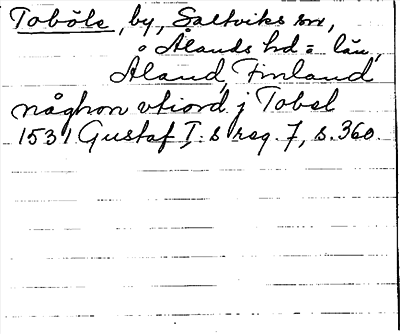 Toböle, by, Saltviks sn,
Ålands hd o län,
Åland, Finland
någhon vtiord j Tobel
1531 Gustaf I:s reg. 7, s. 360.